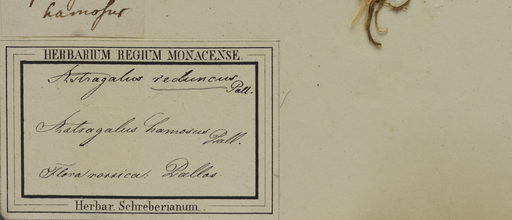 hamosus
HERBARIUM REGIUM MONACENSE.
Astragalus reduncus
Pall.
Astragalus hamosus
Pall.
Flora rossica. Pallas.
Herbar. Schreberianum.